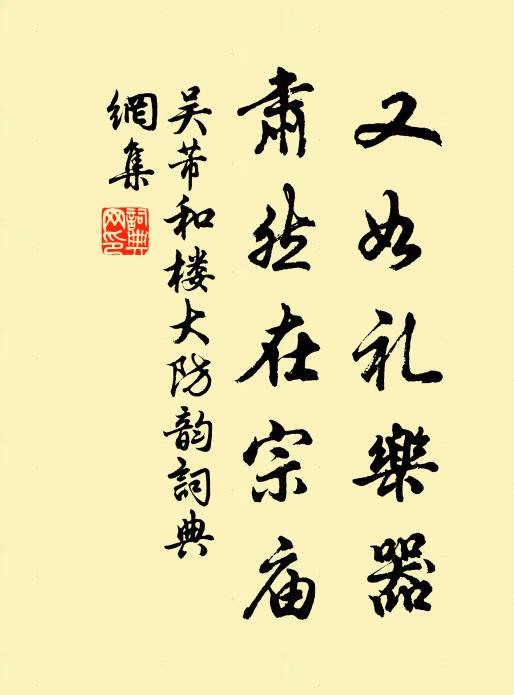 又如礼樂器
肅然在宗庙
吴芾和楼大防韵詞典
網集
詞典
网印